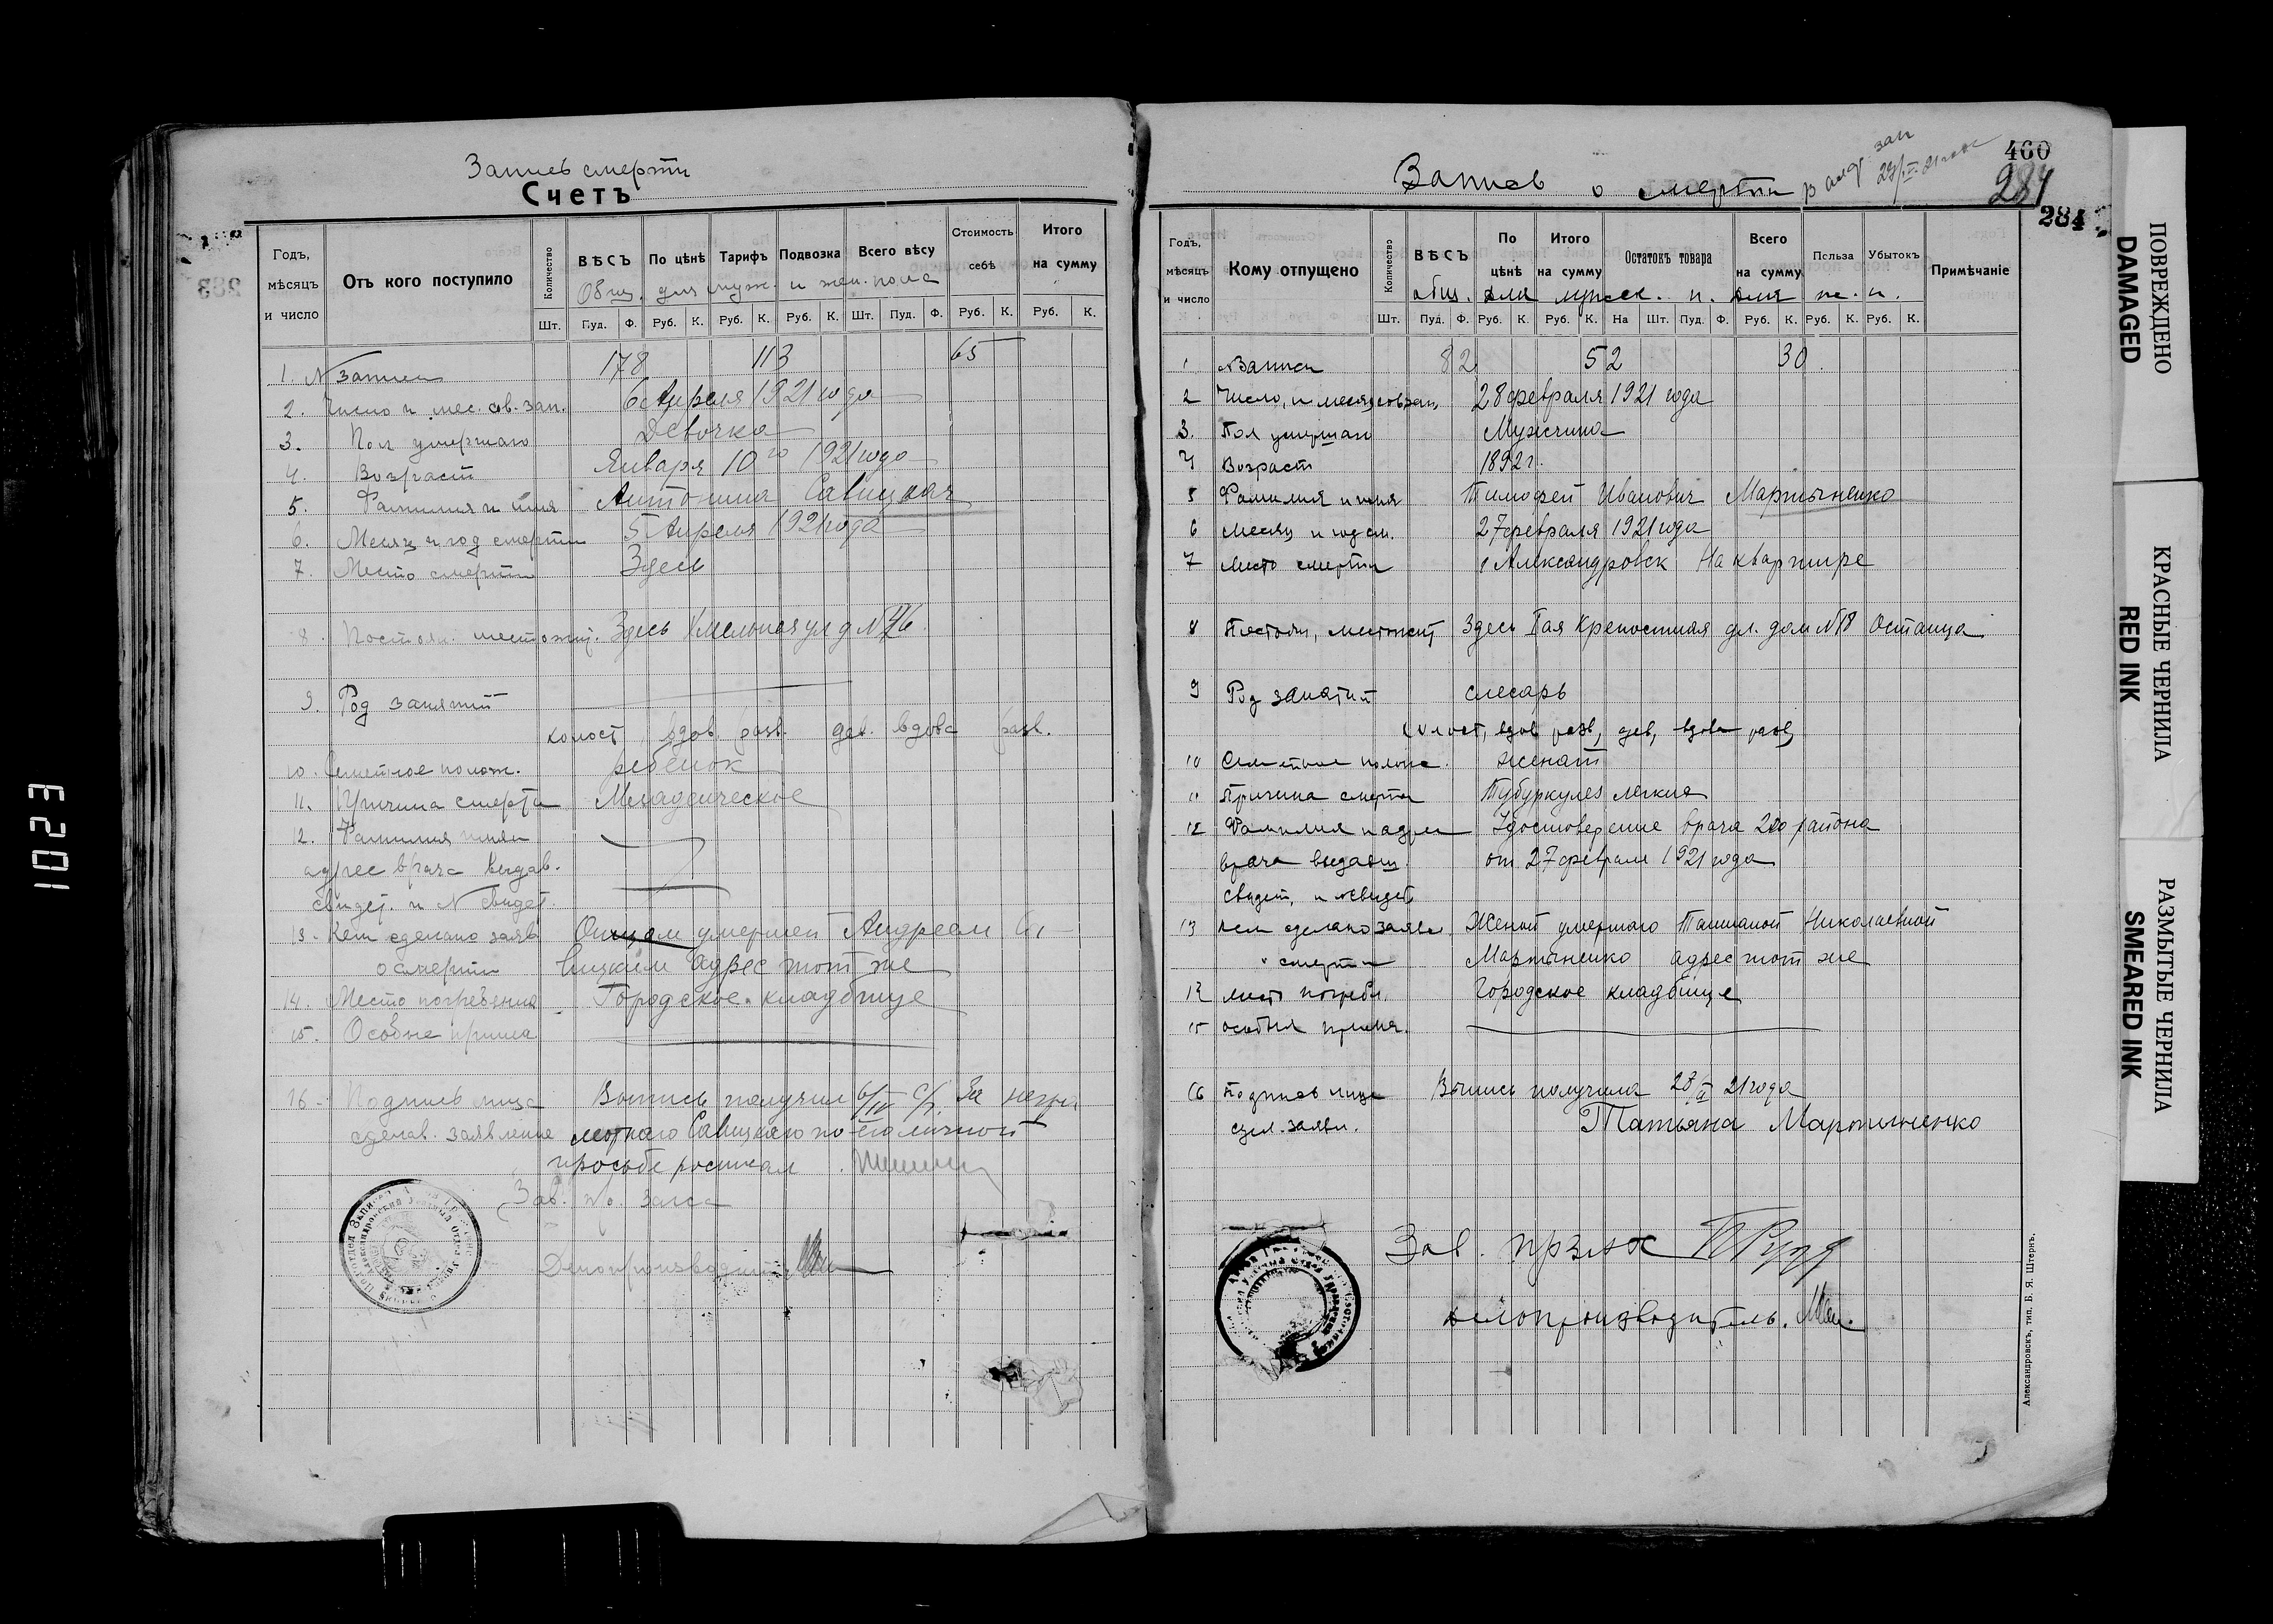 Запись смерти
Счетъ
Годъ, мѣсяцъ и число
Отъ кого поступило
Количество
ВѢСЪ
По цѣнѣ
Тарифъ
Подвозка
Всего вѣсу
Стоимость себѣ
Итого на сумму
Общ. для муж. и жен. пола
Шт. Пуд. Ф. Руб. К. Руб. К. Руб. К. Шт. Пуд. Ф. Руб. К. Руб. К.
1. N Записи 178 113 65
2. Число и мес. сов. зап. 6 Апреля 1921 года
3. Пол умершаго Девочка
4. Возраст Января 10го 1921 года
5. Фамилия и имя Антонина Савицкая
6. Месяц и год смерти 5 Апреля 1921 года
7. Место смерти Здесь
8. Постоян. местожит. Здесь ул д N
9. Род занятий
холост вдов. разв. дев. вдова разв.
10. Семейное полож. ребенок
11. Причина смерти Младенческое
12. Фамилия имя
адрес врача выдав.
свидет. и N свидет.
13. Кем сделано заяв Отцом умершей Андреем Са-
о смерти вицким адрес тот же
14. Место погребения Городское кладбище
15. Особые примеч
16. Подпись лица Выпись получил 6/IV с/г. За негра
сделав. заявление мотнаго Савицкаго по его личной
просьбе росписал
Зав. п/о. загса
Делопроизводитель
Запись о смерти
460
284
284
Годъ, мѣсяцъ и число
Кому отпущено
Количество
ВѢСЪ
По цѣнѣ
Итого на сумму
Остатокъ товара
Всего на сумму
Польза
Убытокъ
Примѣчаніе
общ. для мужск. п. для ж. п.
Шт. Пуд. Ф. Руб. К. Руб. К. На Шт. Пуд. Ф. Руб. К. Руб. К. Руб. К.
1 N Записи 82 52 30
2 Число, и месяц сов зап, 28 февраля 1921 года
3. Пол умершаго Мужчина
4 Возраст 1892 г.
5 Фамилия и имя Тимофей Иванович Мартыненко
6 Месяц и год см. 27 февраля 1921 года
7 Место смерти г Александровск На квартире
8 Постоян, местожит, Здесь Iая Крепостная ул. дом N 18 Останца
9 Род занятий слесарь
холост, вдов разв, дев, вдова разв,
10 Семейное полож. женат
11 Причина смерти Тубуркулез легких
12 Фамилия и адрес Удостоверение врача 2го района
врача выдавш. от 27 февраля 1921 года
свидет, и N свидет
13 Кем сделано заявл Женой умершаго Татианой Николаевной
о смерти Мартыненко адрес тот же
14 Место погребл. Городское кладбище
15 особыя примеч.
16 Подпись лица Выпись получила 28/II 21 года
сдел. заявл. Татьяна Мартыненко
Зав.
Делопроизводитель.
Александровскъ, тип. Б. Я. Штернъ.
ПОВРЕЖДЕНО
DAMAGED
КРАСНЫЕ ЧЕРНИЛА
RED INK
РАЗМЫТЫЕ ЧЕРНИЛА
SMEARED INK
1023